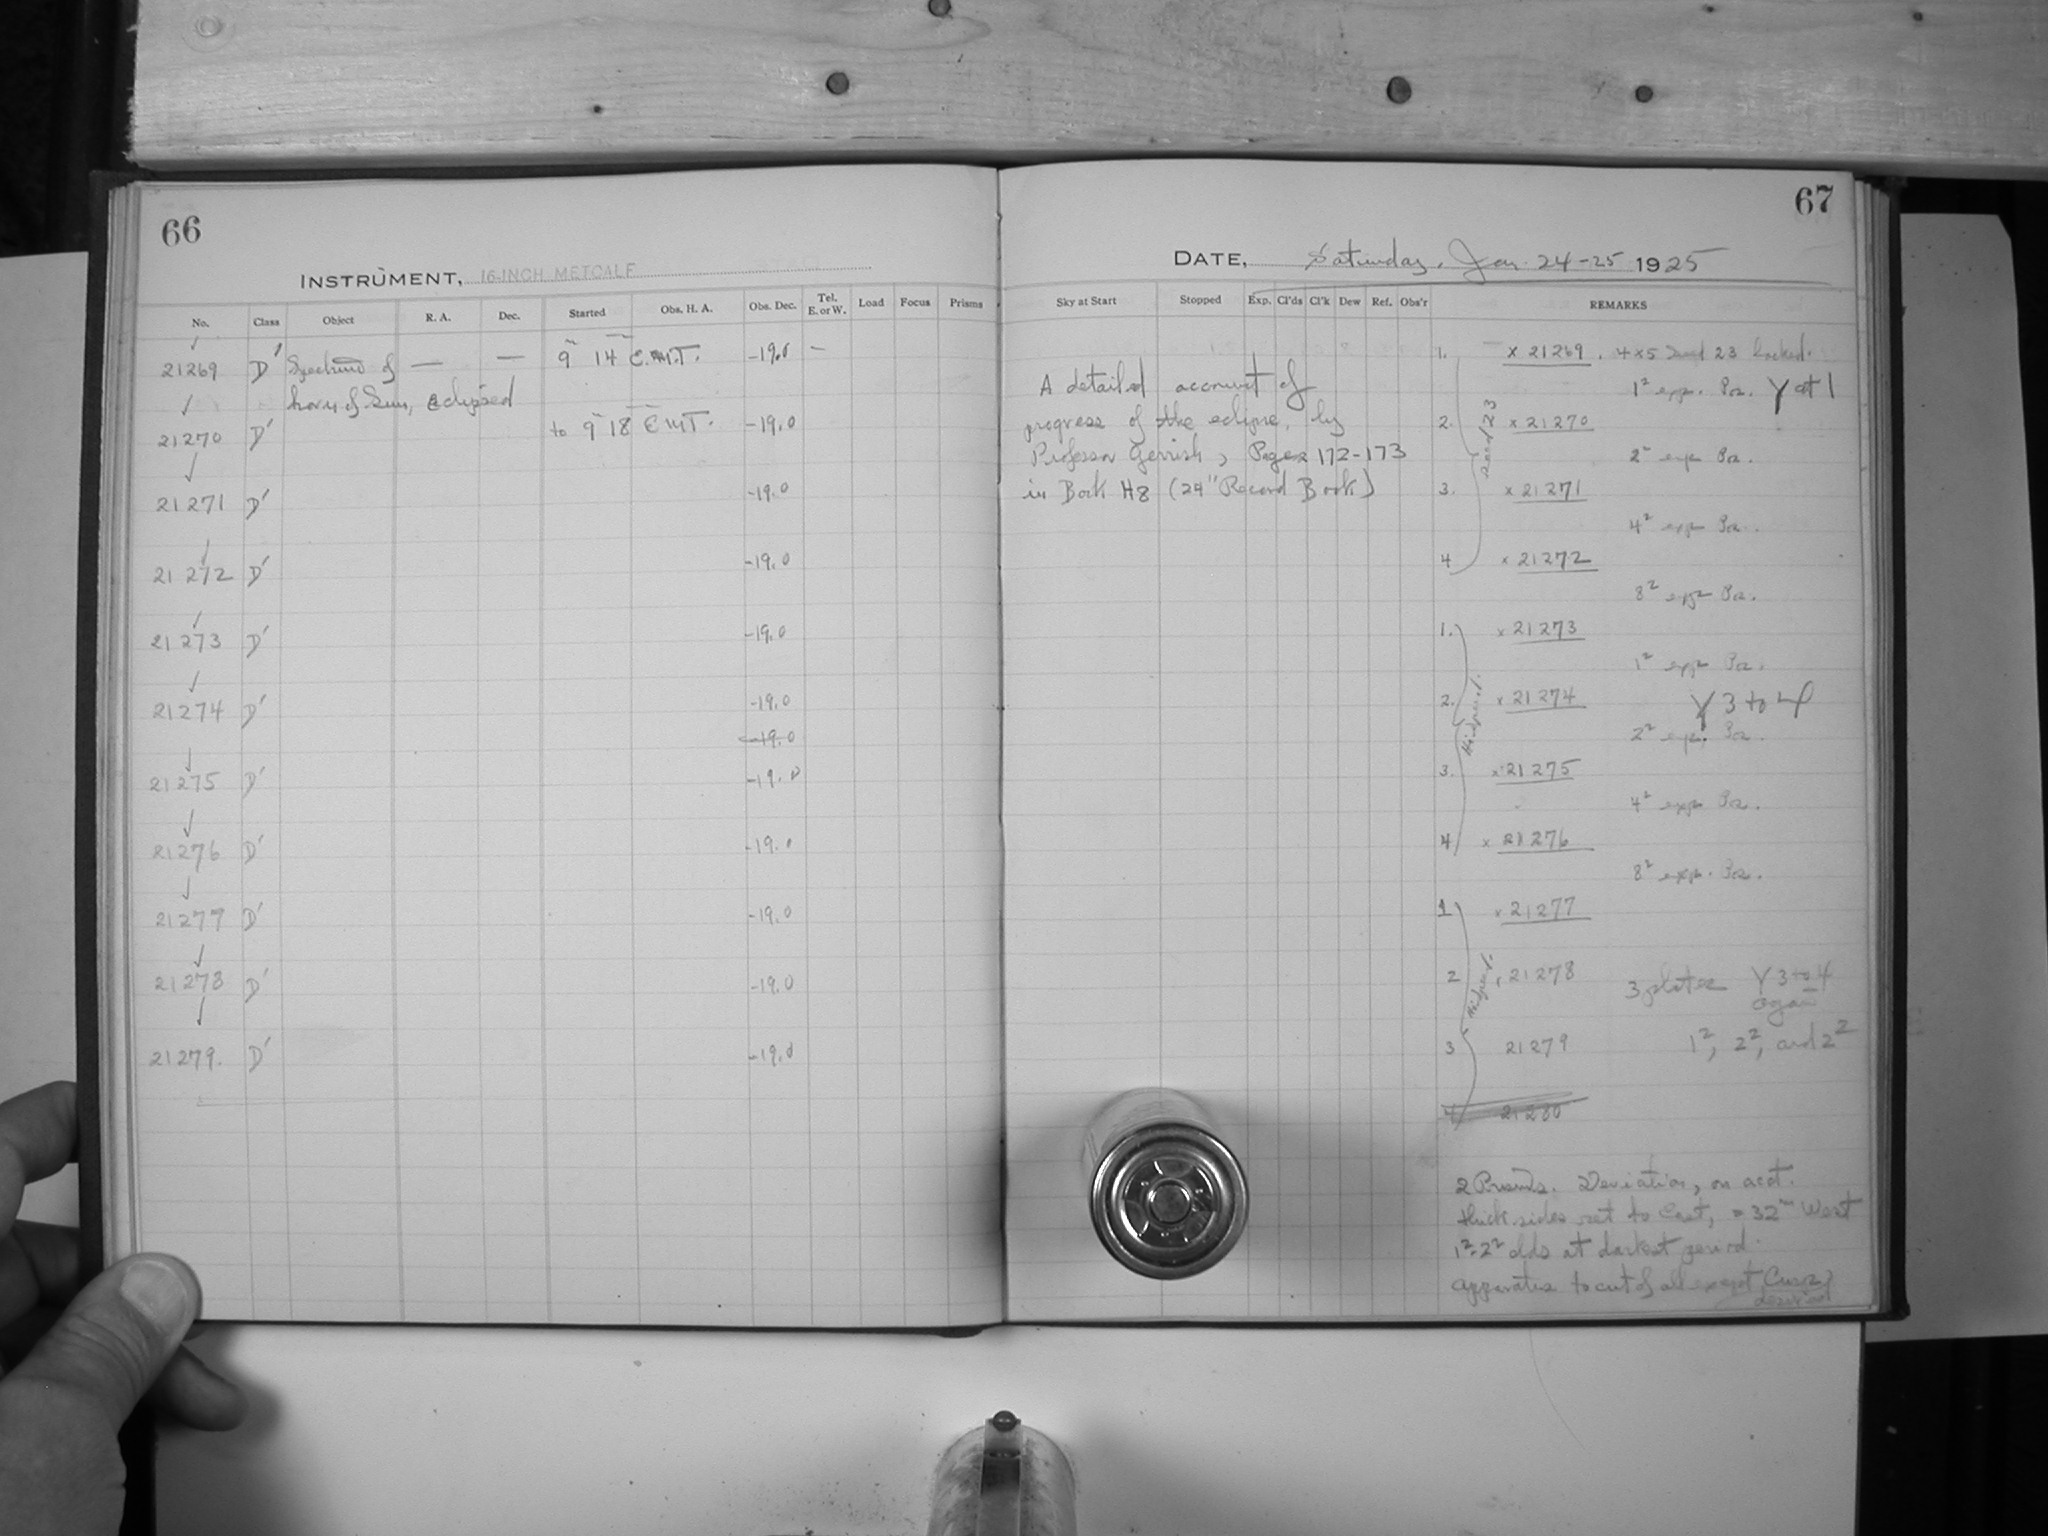 66
INSTRUMENT, 16-INCH METCALF
No. Class Object R. A. Dec. Started Obs. H. A. Obs. Dec. Tel. E. or W. Load Focus Prisms
21269 D' Spectrum of — — 9 14 E.M.T. -19.0 —
horn of Sun, eclipsed
21270 D' to 9 18 E M T. -19.0
21271 D' -19.0
21272 D' -19.0
21273 D' -19.0
21274 D' -19.0
-19.0
21275 D' -19.0
21276 D' -19.0
21277 D' -19.0
21278 D' -19.0
21279. D' -19.0
67
DATE, Saturday, Jan. 24-25 1925
Sky at Start Stopped Exp. Cl'ds Cl'k Dew Ref. Obs'r REMARKS
A detailed account of
progress of the eclipse, by
Professor Gerrish, Pages 172-173
in Book H8 (24" Record Book)
1. x 21269. 4x5 Seed 23 backed.
1² exp. Y at 1
2. x 21270
Seed 23
2² exp
3. x 21271
4² exp
4 x 21272
8² exp
1. x 21273
1² exp
2. x 21274 Y 3 to 4
Hi-speed.
2² exp.
3. x 21275
4² exp
4 x 21276
8² exp.
1 x 21277
2 21278 3 plates Y 3 to 4
Hi-speed.
again
3 21279 1², 2², and 2²
4 21280
2 Prisms. Deviation, on acct.
thick sides set to East, = 32ᵐ West
1²-2² at darkest period
apparatus to cut of all except Cusp